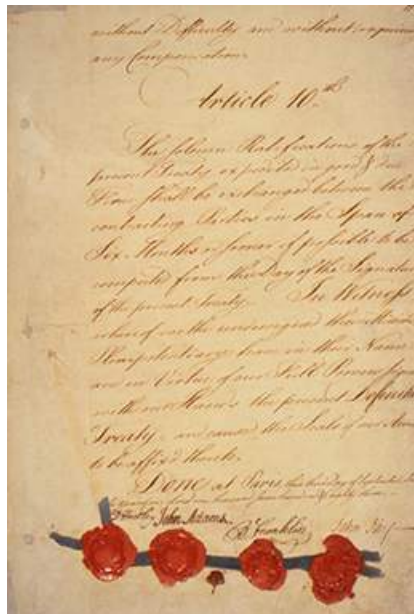 without Difficulty and without requiring
any Compensation.
Article 10.th
The solemn Ratifications of the
present Treaty expedited in good & due
Form shall be exchanged between the
contracting Parties in the Space of
Six Months or sooner if possible to be
computed from the Day of the Signature
of the present Treaty. In Witness
whereof we the undersigned their Ministers
Plenipotentiary have in their Name
and in Virtue of our Full Powers signed
with our Hands the present Definitive
Treaty, and caused the Seals of our Arms
to be affix'd thereto.
Done at Paris, this third Day of September
D Hartley John Adams. B Franklin John Jay